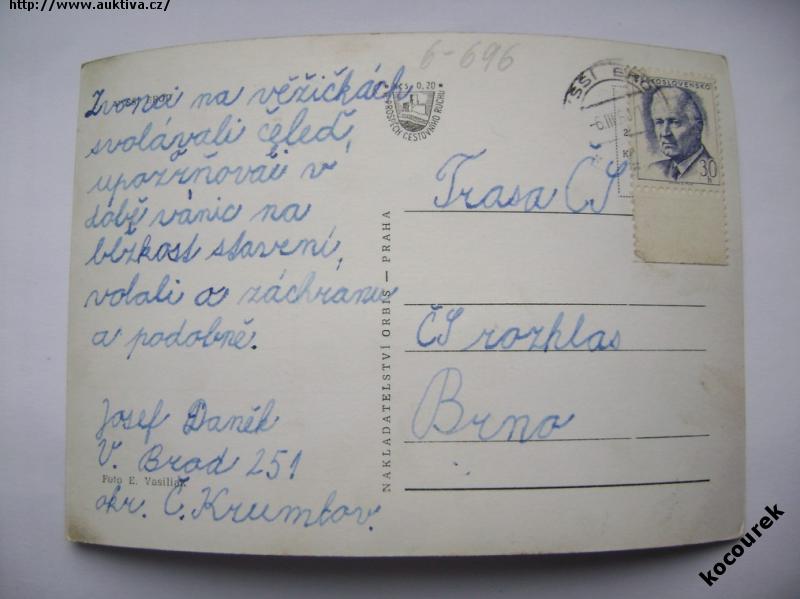 http://www.auktiva.cz/
6-696
VYŠŠÍ BROD
Zvonci na věžičkách
svolávali čeleď,
upozorňovali v
době vánic na
blízkost stavení,
volali o záchranu
a podobně.
Josef Daněk
V. Brod 251
Foto E. Vasiliak
okr. Č. Krumlov.
Kčs 0,20
CESTOVNÍHO RUCHU
NAKLADATELSTVÍ ORBIS — PRAHA
ČESKOSLOVENSKO
30 h
Trasa ČS
ČS rozhlas
Brno
kocourek